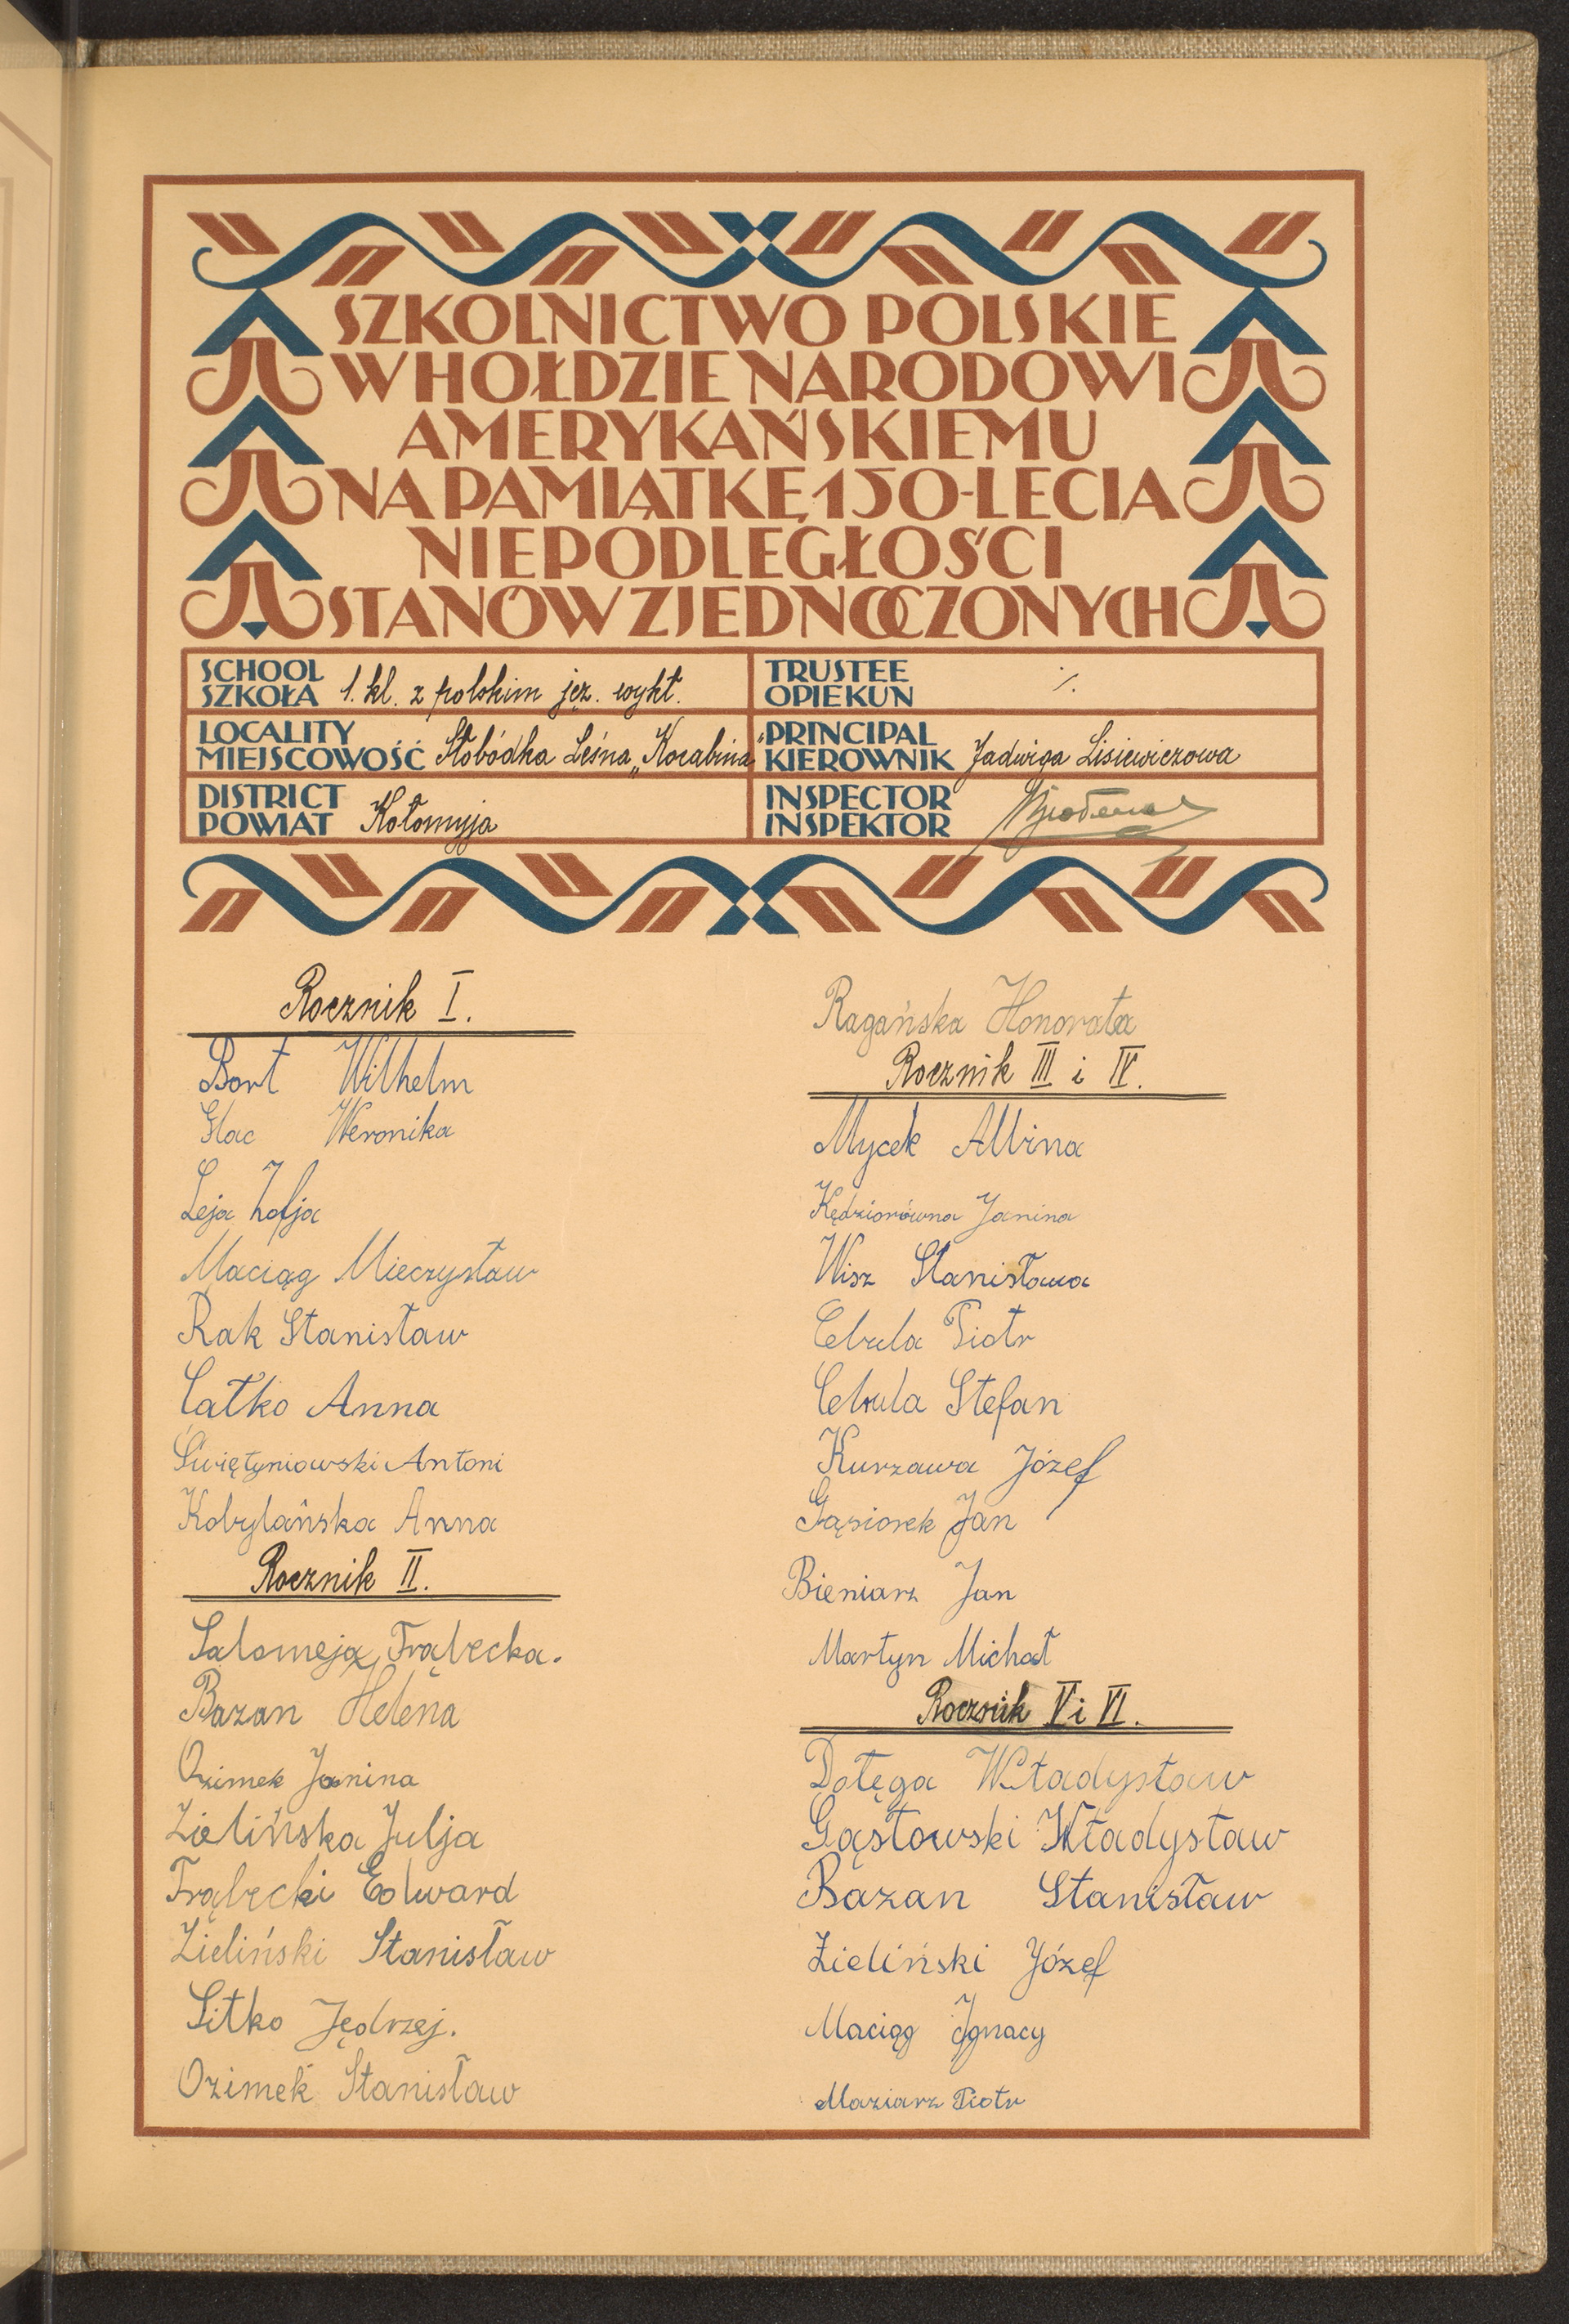 SZKOLNICTWO POLSKIE
W HOŁDZIE NARODOWI
AMERYKAŃSKIEMU
NA PAMIĄTKĘ 150-LECIA
NIEPODLEGŁOŚCI
STANÓW ZJEDNOCZONYCH
SCHOOL
SZKOŁA 1. kl. z polskim jęz. wykt.
TRUSTEE
OPIEKUN ·/·
LOCALITY
MIEJSCOWOŚĆ Słobódka Leśna „Korabina"
PRINCIPAL
KIEROWNIK Jadwiga Lisiewiczowa
DISTRICT
POWIAT Kołomyja
INSPECTOR
INSPEKTOR
Rocznik I.
Bort Wilhelm
Głac Weronika
Leja Zofja
Maciąg Mieczysław
Rak Stanisław
Całko Anna
Świętyniowski Antoni
Kobylańska Anna
Rocznik II.
Salomeja Trąbecka.
Bazan Helena
Ozimek Janina
Zielińska Julja
Trąbecki Edward
Zieliński Stanisław
Sitko Jędrzej.
Ozimek Stanisław
Ragańska Honorata
Rocznik III i IV.
Mycek Albina
Kędziorówna Janina
Wisz Stanisława
Cebula Piotr
Cebula Stefan
Kurzawa Józef
Gąsiorek Jan
Bieniarz Jan
Martyn Michał
Rocznik V i VI.
Dołęga Władysław
Gąsłowski Władysław
Bazan Stanisław
Zieliński Józef
Maciąg Ignacy
Maziarz Piotr